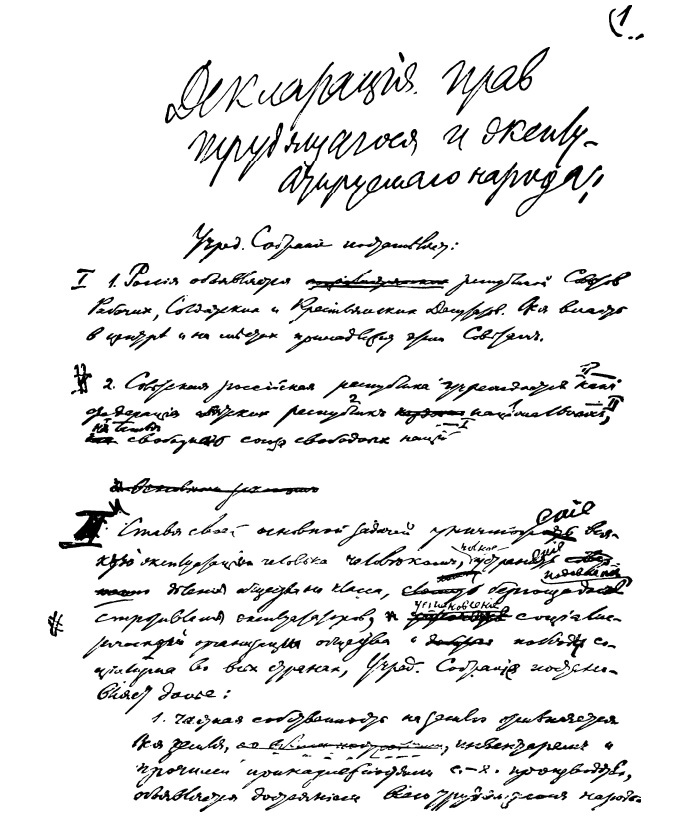 1
Декларація прав
трудящагося и эксплу-
атируемаго народа
Учред. Собраніе постановляет:
I 1. Россія объявляется республикой Советов
Рабочих, Солдатских и Крестьянских Депутатов. Вся власть
в центре и на местах принадлежит этим Советам.
2. Советская россійская республика учреждается
федерація советских республик національных,
свободный союз свободных націй
II. Ставя своей основной задачей уничтоженіе вся-
кой эксплуатаціи человека человеком, полное устраненіе
деленія общества на классы, беспощадное
подавленіе
стр
эксплуататоров, установленіе соціалис-
тической организаціи общества и победу со-
ціализма во всех странах, Учред. Собраніе постано-
вляет далее:
1. Частная собственность на землю отменяется
Вся земля, инвентарем и
прочими принадлежностями с.-х. производства,
объявляется достояніем всего трудящагося народа